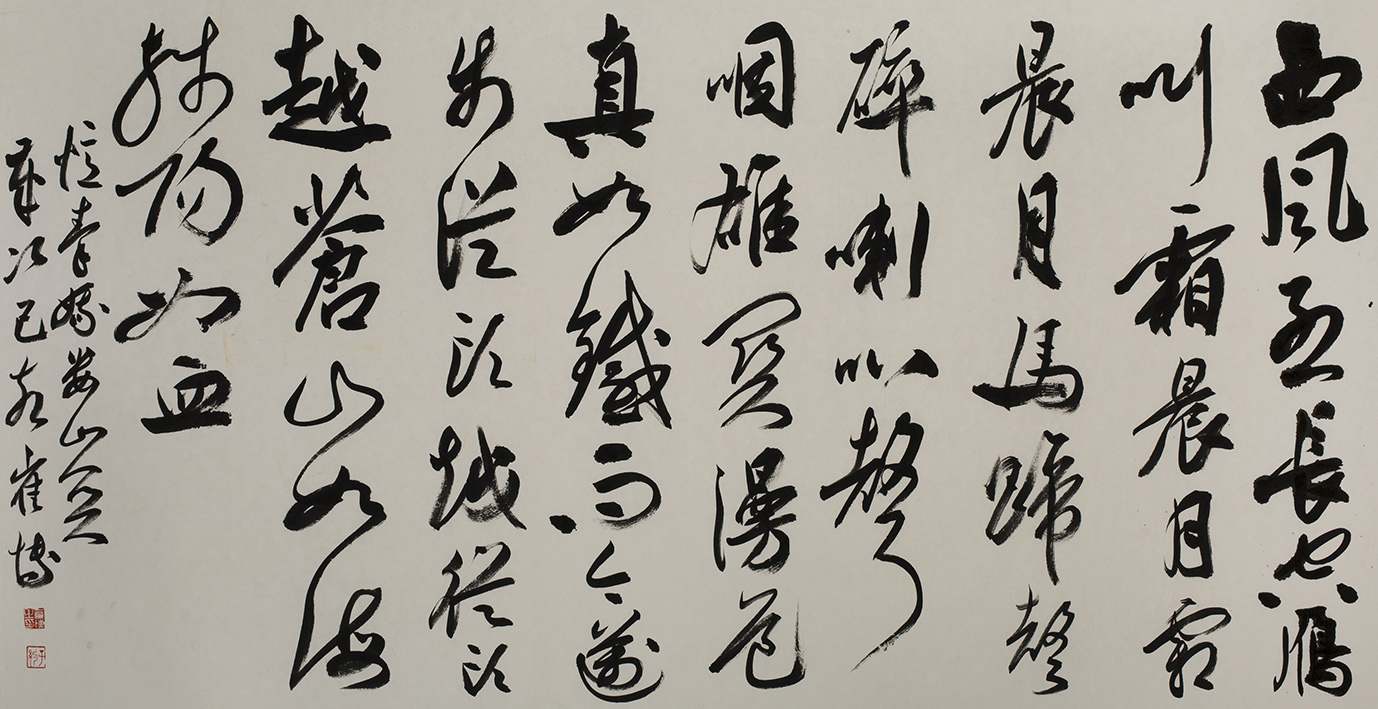 西風烈長空鴈
叫霜晨月霜
晨月馬蹄聲
碎喇叭聲
咽雄關漫道
真如鐵而今邁
步從頭越從頭
越蒼山如海
殘陽如血
憶秦娥婁山關
歲次己亥崔博